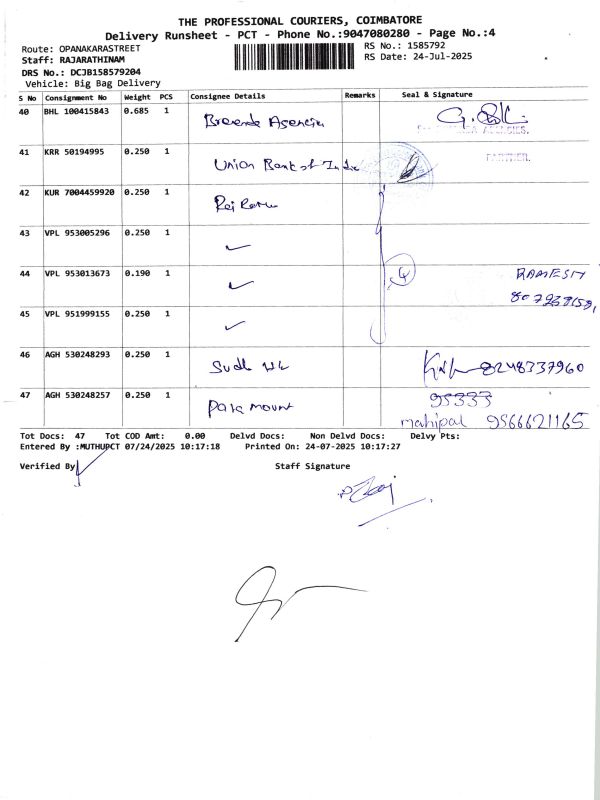 THE PROFESSIONAL COURIERS, COIMBATORE
Delivery Runsheet - PCT - Phone No.:9047080280 - Page No.:4
Route: OPANAKARASTREET
RS No.: 1585792
Staff: RAJARATHINAM
RS Date: 24-Jul-2025
DRS No.: DCJB158579204
Vehicle: Big Bag Delivery
S No Consignment No Weight PCS Consignee Details Remarks Seal & Signature
40 BHL 100415843 0.685 1
41 KRR 50194995 0.250 1 Union Bank of India
PARTNER.
42 KUR 7004459920 0.250 1
43 VPL 953005296 0.250 1 ✓
44 VPL 953013673 0.190 1 ✓ 4 RAMESH
45 VPL 951999155 0.250 1 ✓
46 AGH 530248293 0.250 1 8248337960
47 AGH 530248257 0.250 1 Paramount 95333
mahipal 9566621165
Tot Docs: 47 Tot COD Amt: 0.00 Delvd Docs: Non Delvd Docs: Delvy Pts:
Entered By :MUTHUPCT 07/24/2025 10:17:18 Printed On: 24-07-2025 10:17:27
Verified By Staff Signature